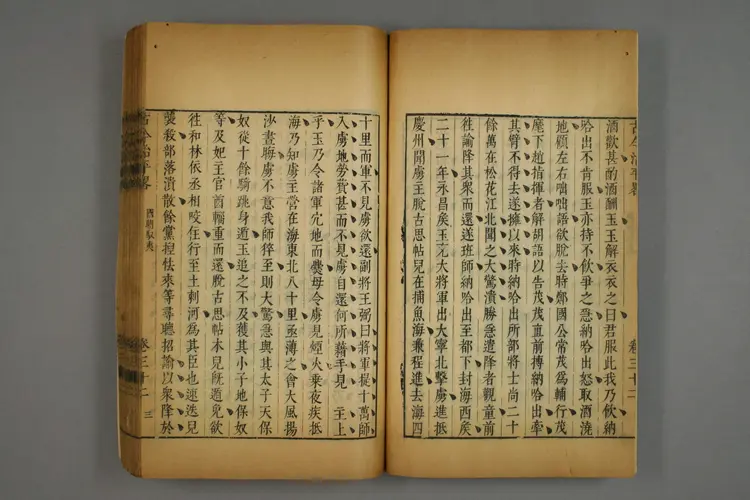 酒歡甚酌酒酬玉玉解衣衣之曰君服此我乃飲納
哈出不肯服玉亦持不飲爭之急納哈出怒取酒澆
地顧左右咄咄語欲脫去時鄭國公常茂為輔行茂
麾下趙指揮者解胡語以告茂茂直前搏納哈出牽
其臂不得去遂擁以來時納哈出所部將士尚二十
餘萬在松花江北聞之大驚潰勝急遣降者觀童前
徃諭降其衆而還遂班師納哈出至都下封海西矦
二十一年永昌矦玉充大將軍出大寧北擊虜進抵
慶州聞虜主脫古思帖兒在捕魚海兼程進去海四
十里而軍不見虜欲還副將王弼曰將軍提十萬師
入虜地勞費甚而不見虜自還何所藉手見 主上
乎玉乃令諸軍穴地而爨毋令虜見烟火乗夜疾抵
海乃知虜主營在海東北八十里亟薄之會大風揚
沙晝晦虜不意我師猝至則大驚急與其太子天保
奴從十餘騎跳身遁玉追之不及獲其小子地保奴
等及妃主官酋輜重而還脫古思帖木兒旣遁免欲
徃和林依丞相咬住行至土剌河為其臣也速迭兒
襲殺部落潰散餘黨揑怯來等尋聽招諭以衆降於
古今治平畧
卷三十二 三